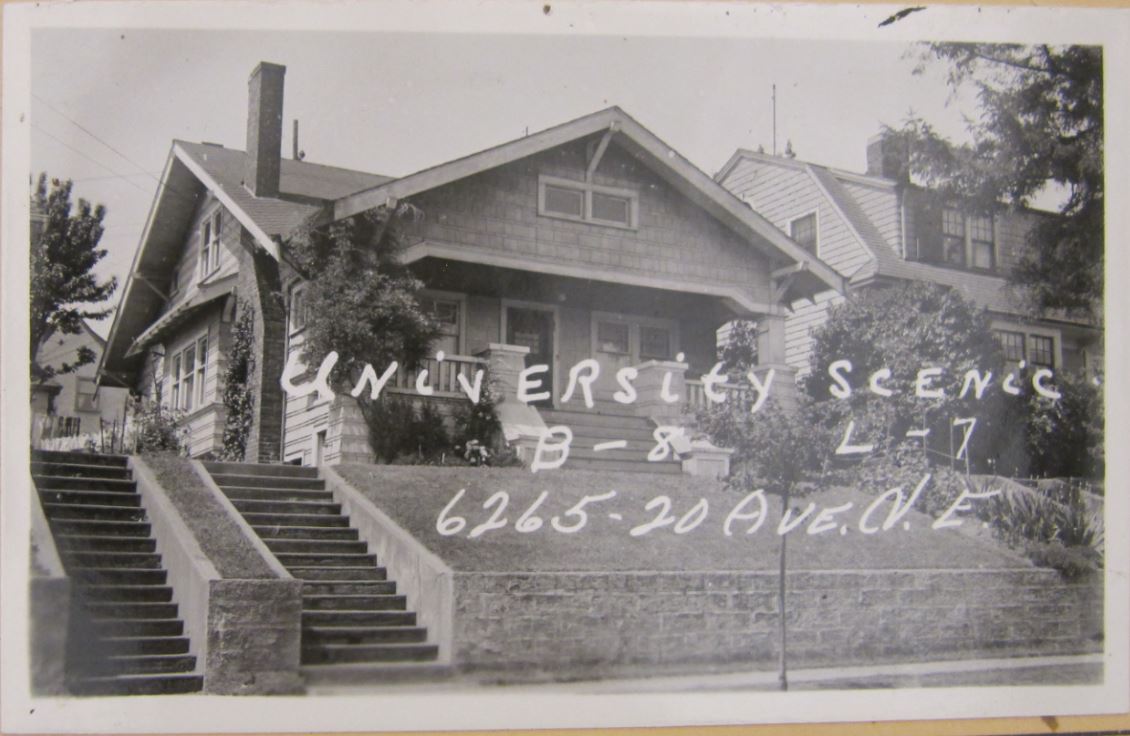 University Scenic
B-8 L-7
6265-20 Ave. N. E.